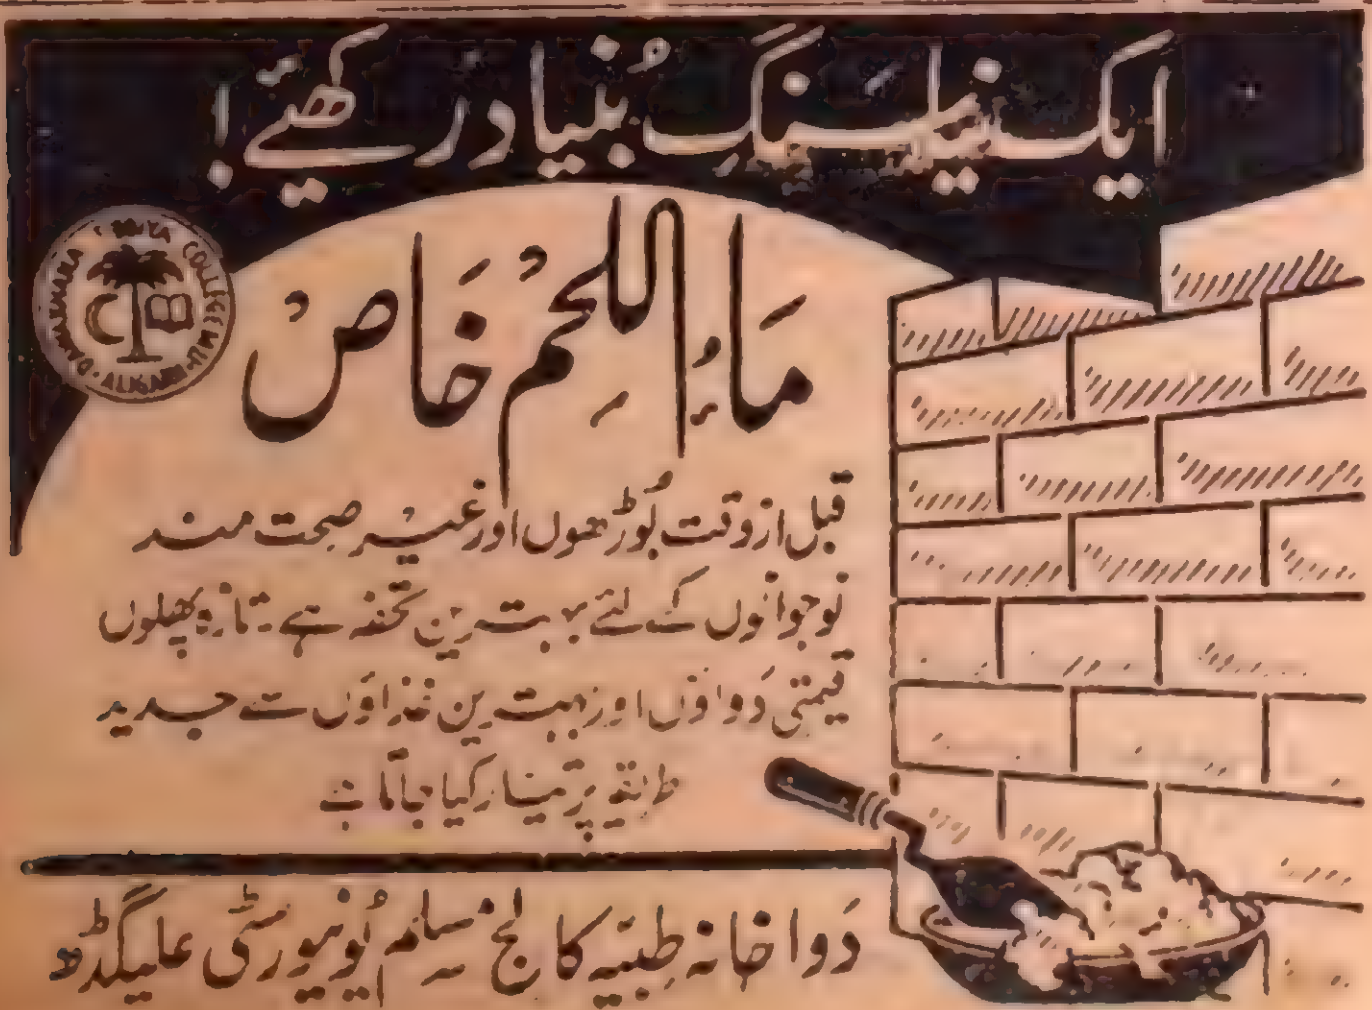 ایک نیا سنگِ بُنیاد رکھئے !
DAWAKHANA TIBBIYA COLLEGE M.U. ALIGARH
مَاءُ اللحِم خَاص
قبل از وقت بُوڑھوں اور غیر صحت مند
نوجوانوں کے لئے بہترین تحفہ ہے۔ تازہ پھلوں
قیمتی دَواؤں اور بہترین غذاؤں سے جدید
طریقہ پر تیار کیا جاتا ہے
دَواخانہ طبیّہ کالج مسلم یُونیورسٹی علیگڈھ